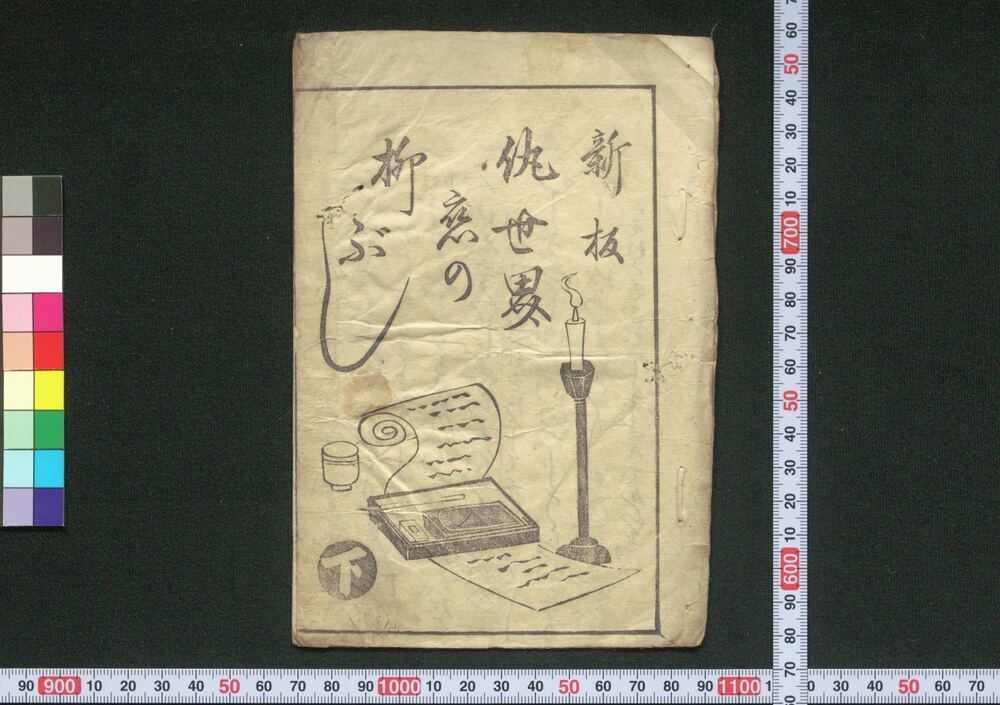 新板
仇世界
恋の
柳ぶし
下
60 50 40 30 20 10 700 90 80 70 60 50 40 30 20 10 600 90 80 70
90 900 10 20 30 40 50 60 70 80 90 1000 10 20 30 40 50 60 70 80 90 1100 30 40 50 60 70